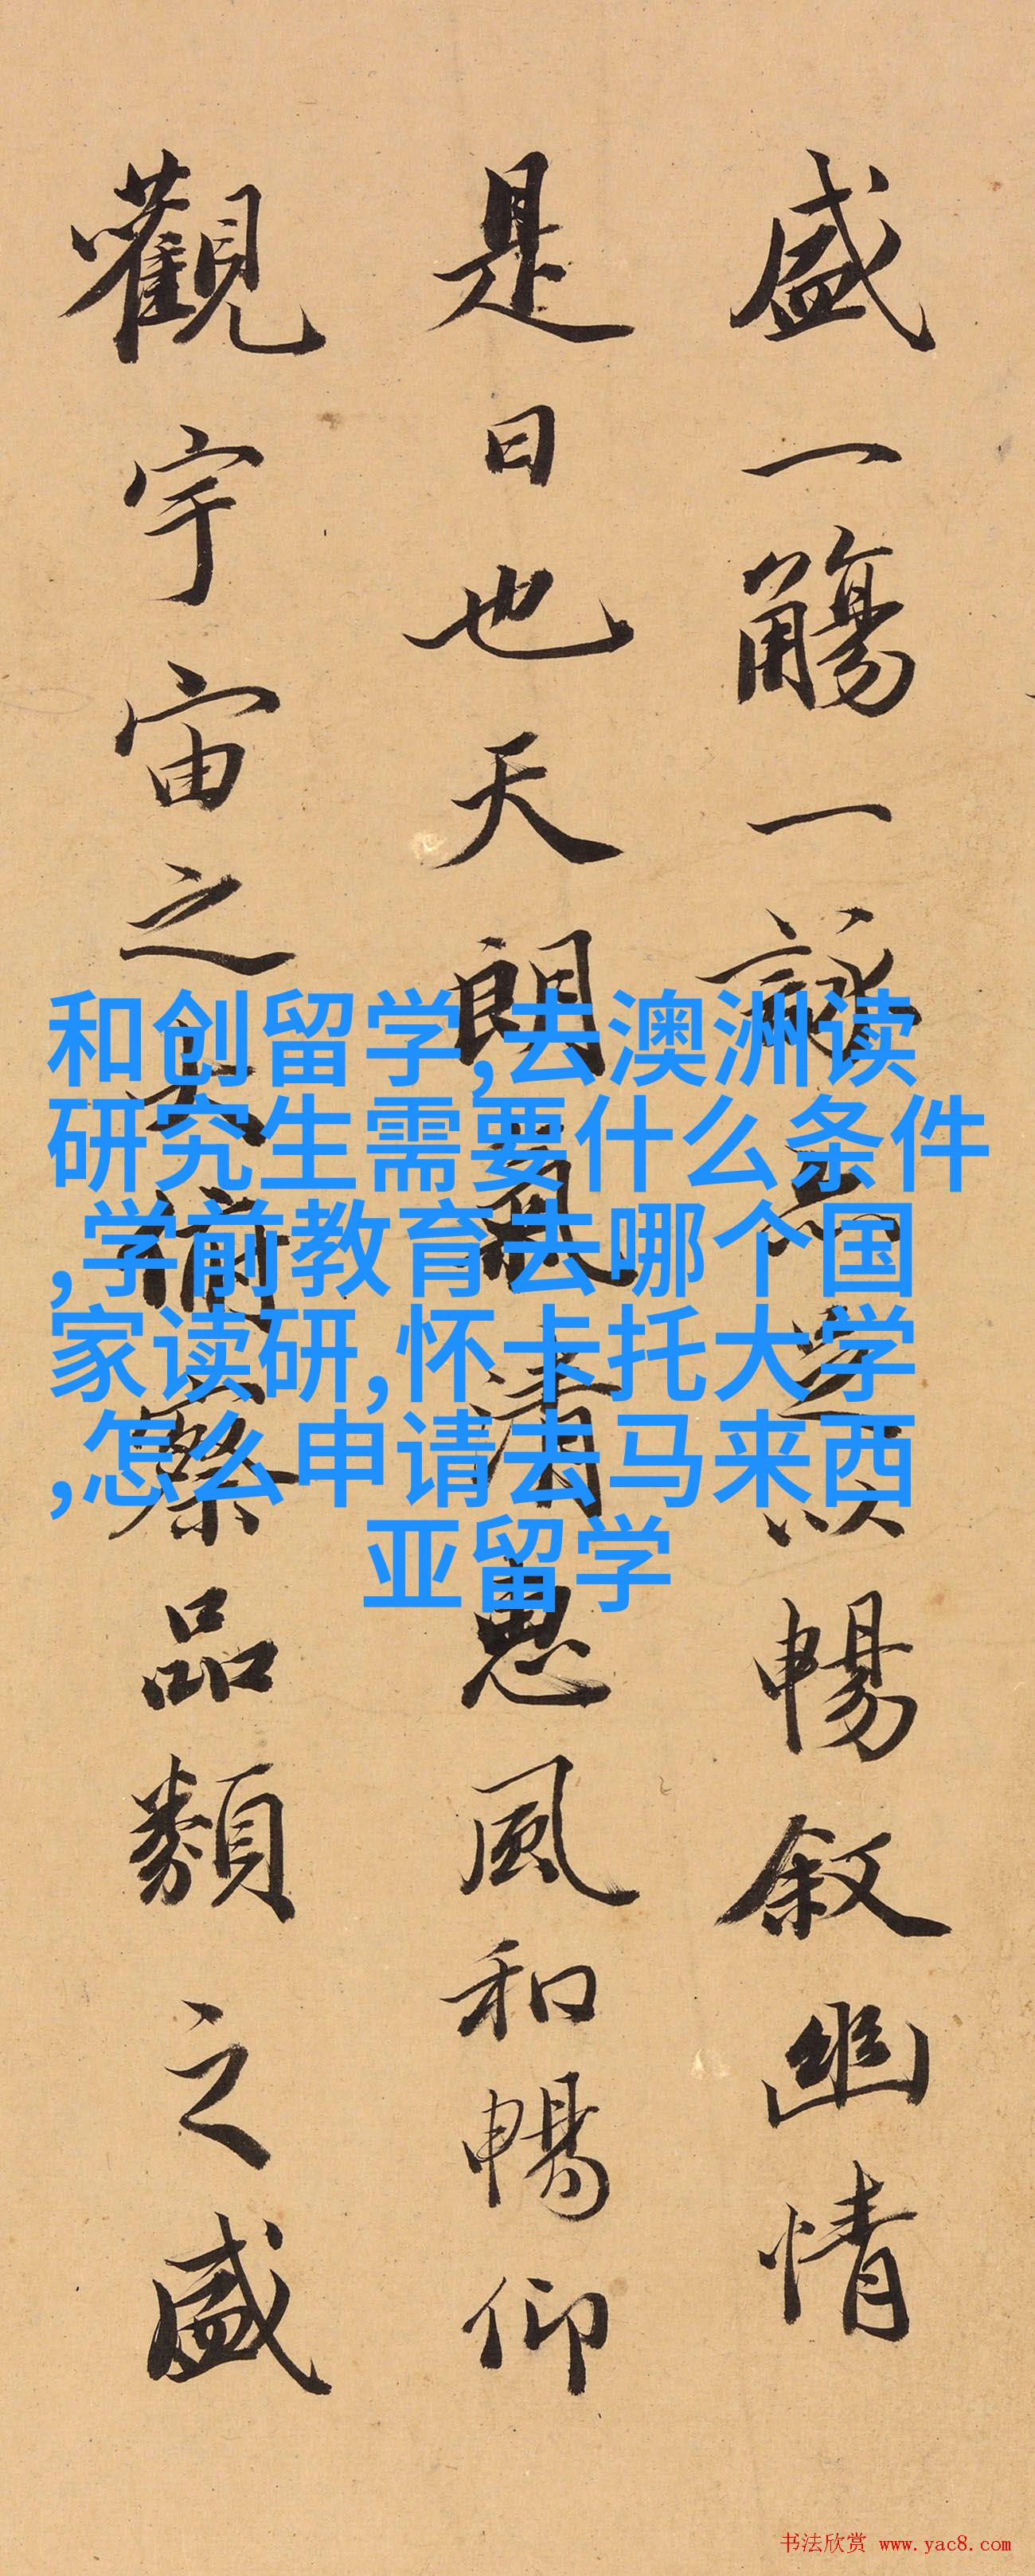 盛一觴一詠亦足以暢叙幽情
是日也天朗氣清惠風和暢仰
觀宇宙之大俯察品類之盛
和创留学,去澳洲读
研究生需要什么条件
,学前教育去哪个国
家读研,怀卡托大学
,怎么申请去马来西
亚留学
书法欣赏 www.yac8.com